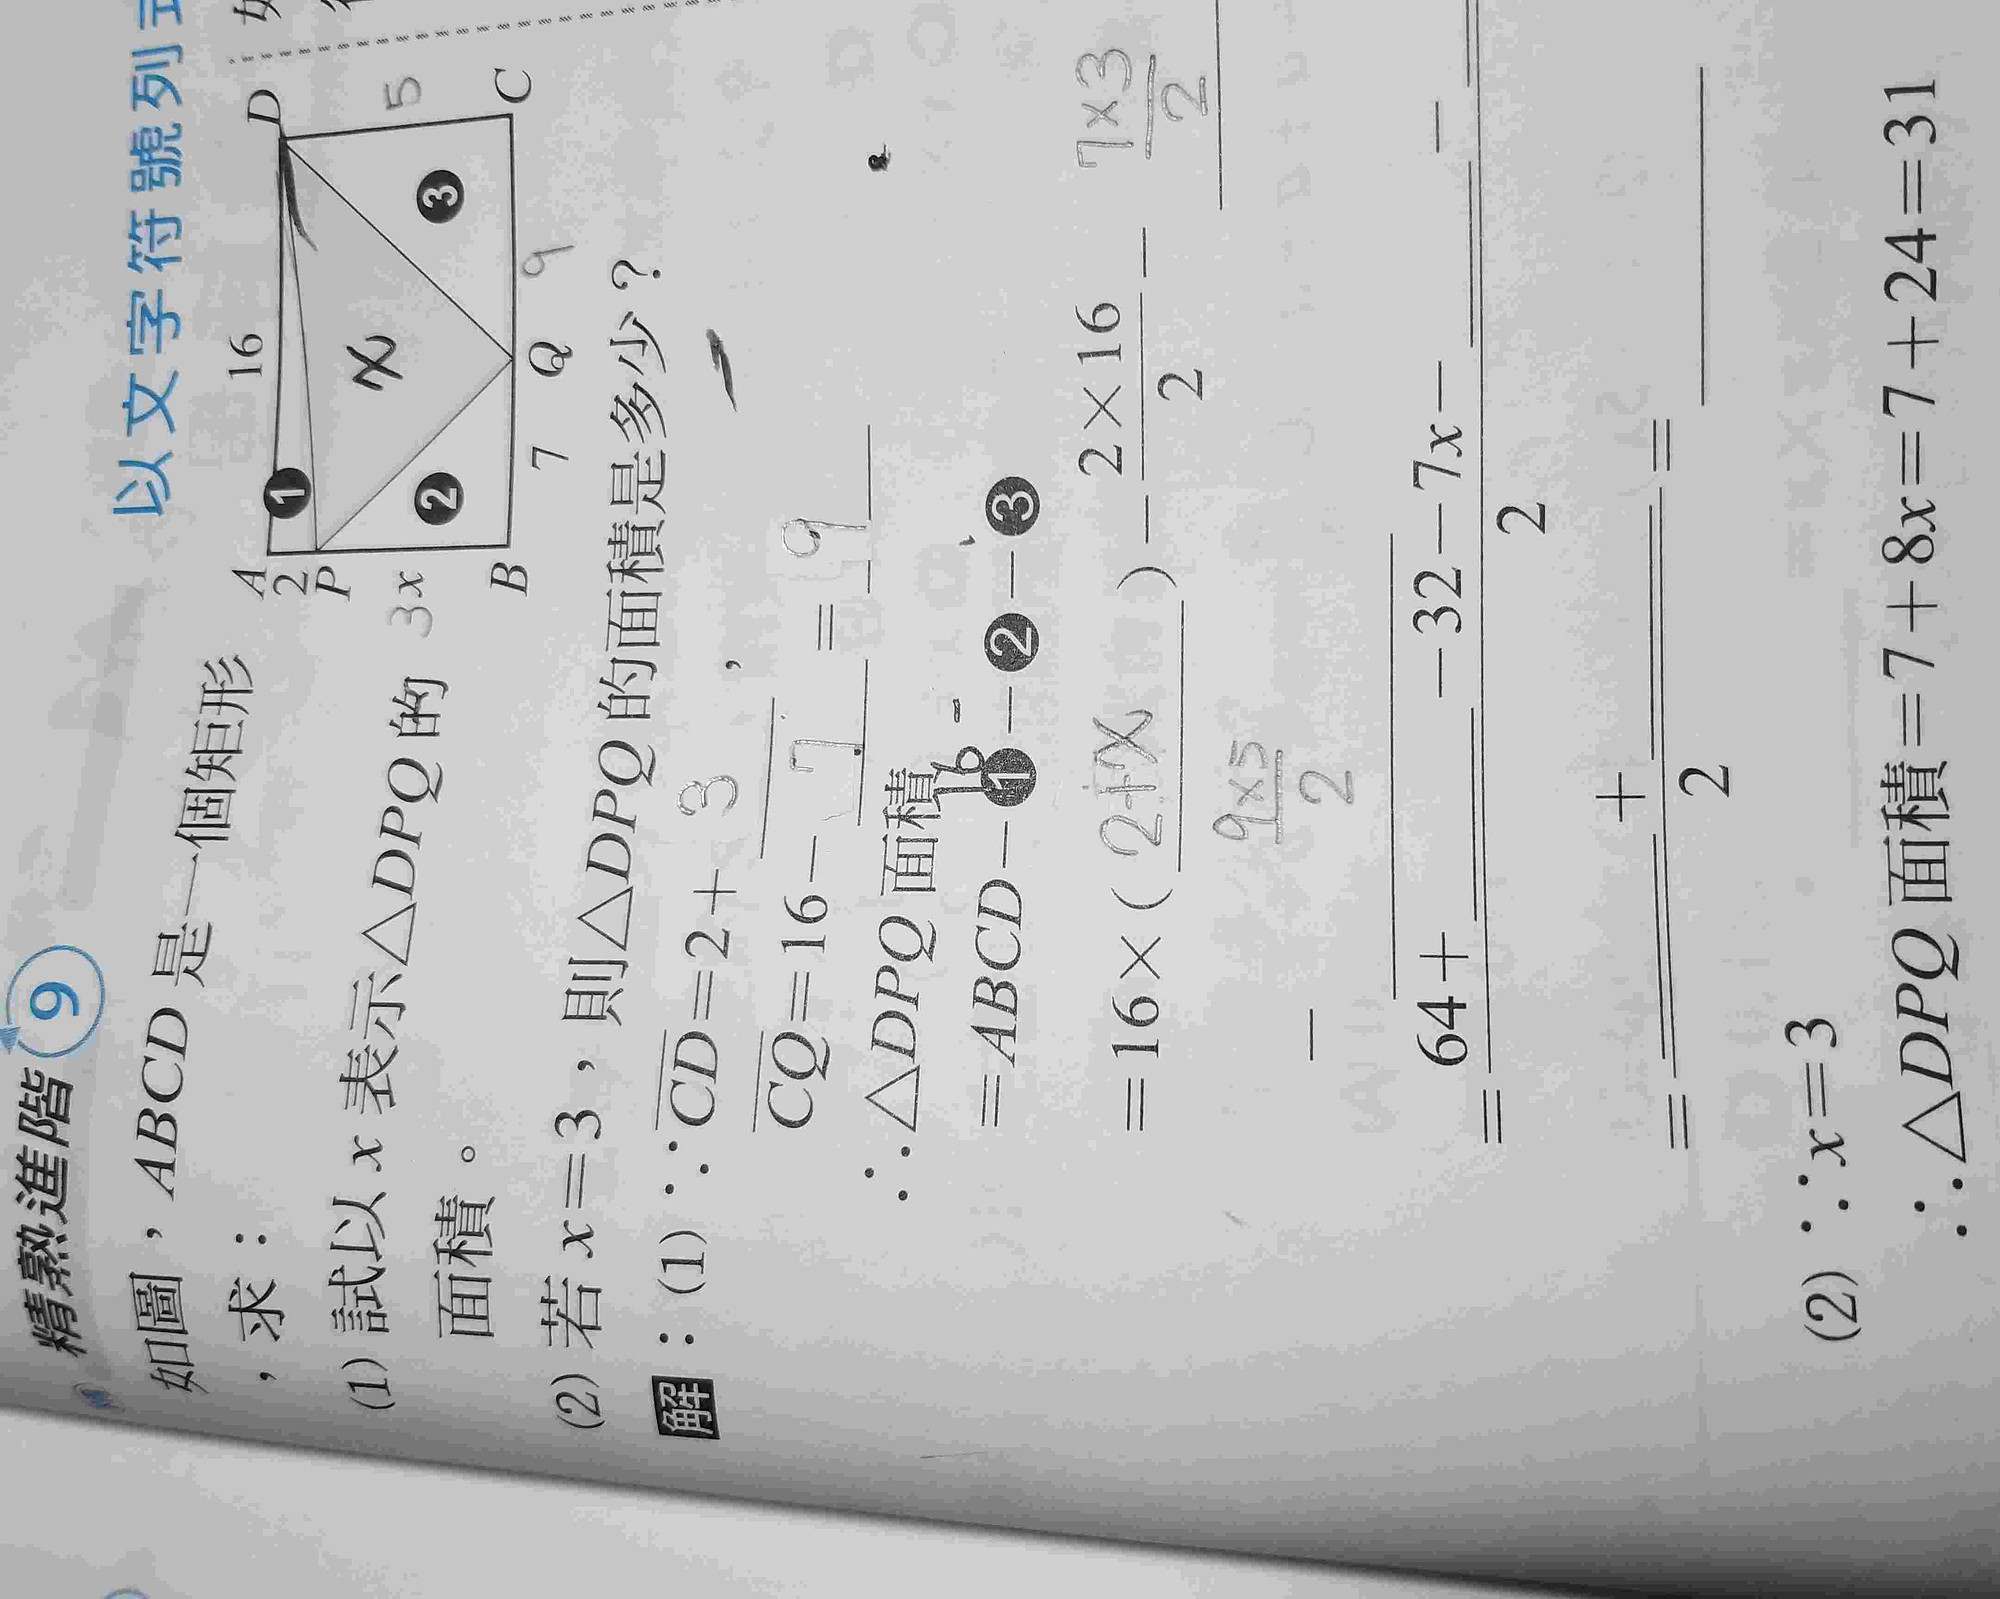 精熟進階 9
以文字符號列
如圖，ABCD 是一個矩形
，求：
(1) 試以 x 表示△DPQ 的
面積。
(2) 若 x＝3，則△DPQ 的面積是多少？
A 16 D
2
P
3x
5
B 7 Q 9 C
❶
x
❷ ❸
解：(1) ∵CD＝2＋ 3 ，
CQ＝16－ 7 ＝ 9
∴△DPQ 面積
＝ABCD－❶－❷－❸
＝16×( 2+x )－2×16/2－ 7×3/2
－ 9×5/2
＝64＋ －32－7x－ － /2
＝ ＋ /2 ＝
(2) ∵x＝3
∴△DPQ 面積＝7＋8x＝7＋24＝31